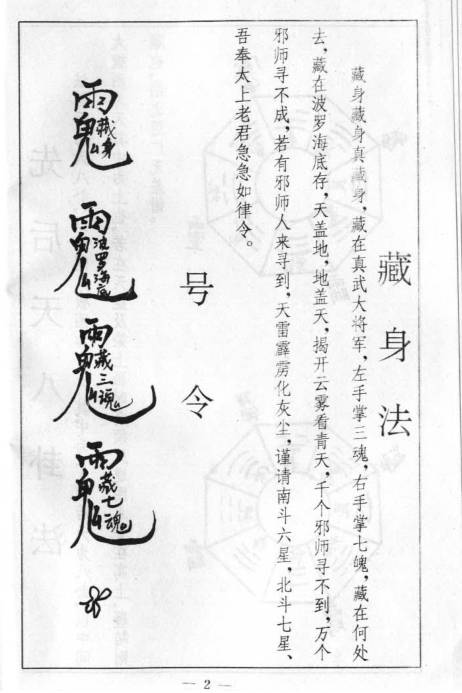 藏身法
藏身藏身真藏身，藏在真武大将军，左手掌三魂，右手掌七魄，藏在何处
去，藏在波罗海底存，天盖地，地盖天，揭开云雾看青天，千个邪师寻不到，万个
邪师寻不成，若有邪师人来寻到，天雷霹雳化灰尘，谨请南斗六星，北斗七星、
吾奉太上老君急急如律令。
号令
雨鬼藏身
雨鬼波罗海底
雨鬼藏三魂
雨鬼藏七魂
— 2 —